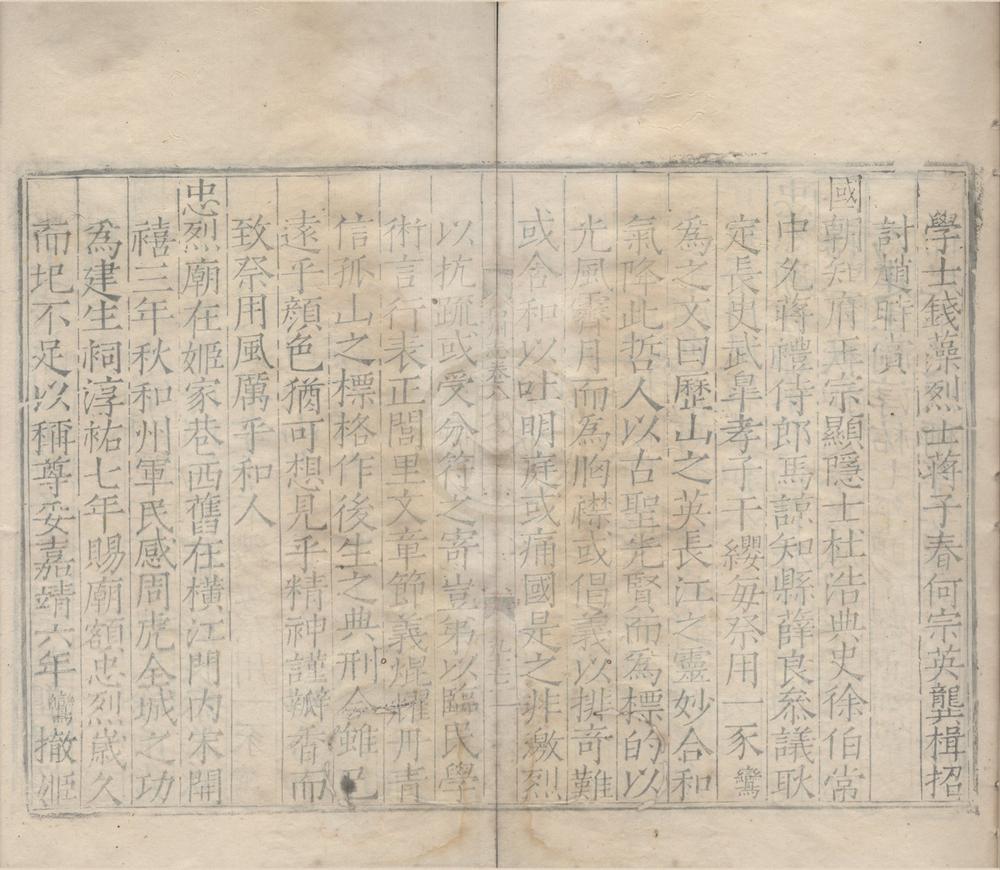 學士錢藻烈士蔣子春何宗英龔楫招
討趙時賞
國朝知府王宗顯隱士杜浩典史徐伯常
中允蔣禮侍郎馬諒知縣薛良叅議耿
定長史武臯孝子干纓每祭用一豕鸞
為之文曰歷山之英長江之靈妙合和
氣降此哲人以古聖先賢而為標的以
光風霽月而為胸襟或倡義以排奇難
或舍和以吐明庭或痛國是之非激烈
以抗疏或受分符之寄豈第以臨民學
術言行表正閭里文章節義焜耀丹青
信孤山之標格作後生之典刑今雖已
遠乎顔色猶可想見乎精神謹瓣香而
致祭用風厲乎和人
忠烈廟在姬家巷西舊在橫江門內宋開
禧三年秋和州軍民感周虎全城之功
為建生祠淳祐七年賜廟額忠烈嵗久
而圮不足以稱尊妥嘉靖六年鸞撤姬